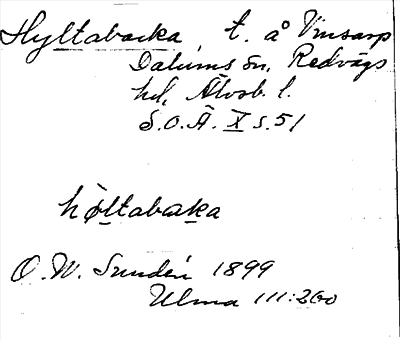 Hyltabacka, t. å Vinsarp
Dalums sn, Redvägs
hd, Älvsb. l.
S.O.Ä. X s. 51
hỳltabaka
O. W. Sundén 1899
Ulma 111:260